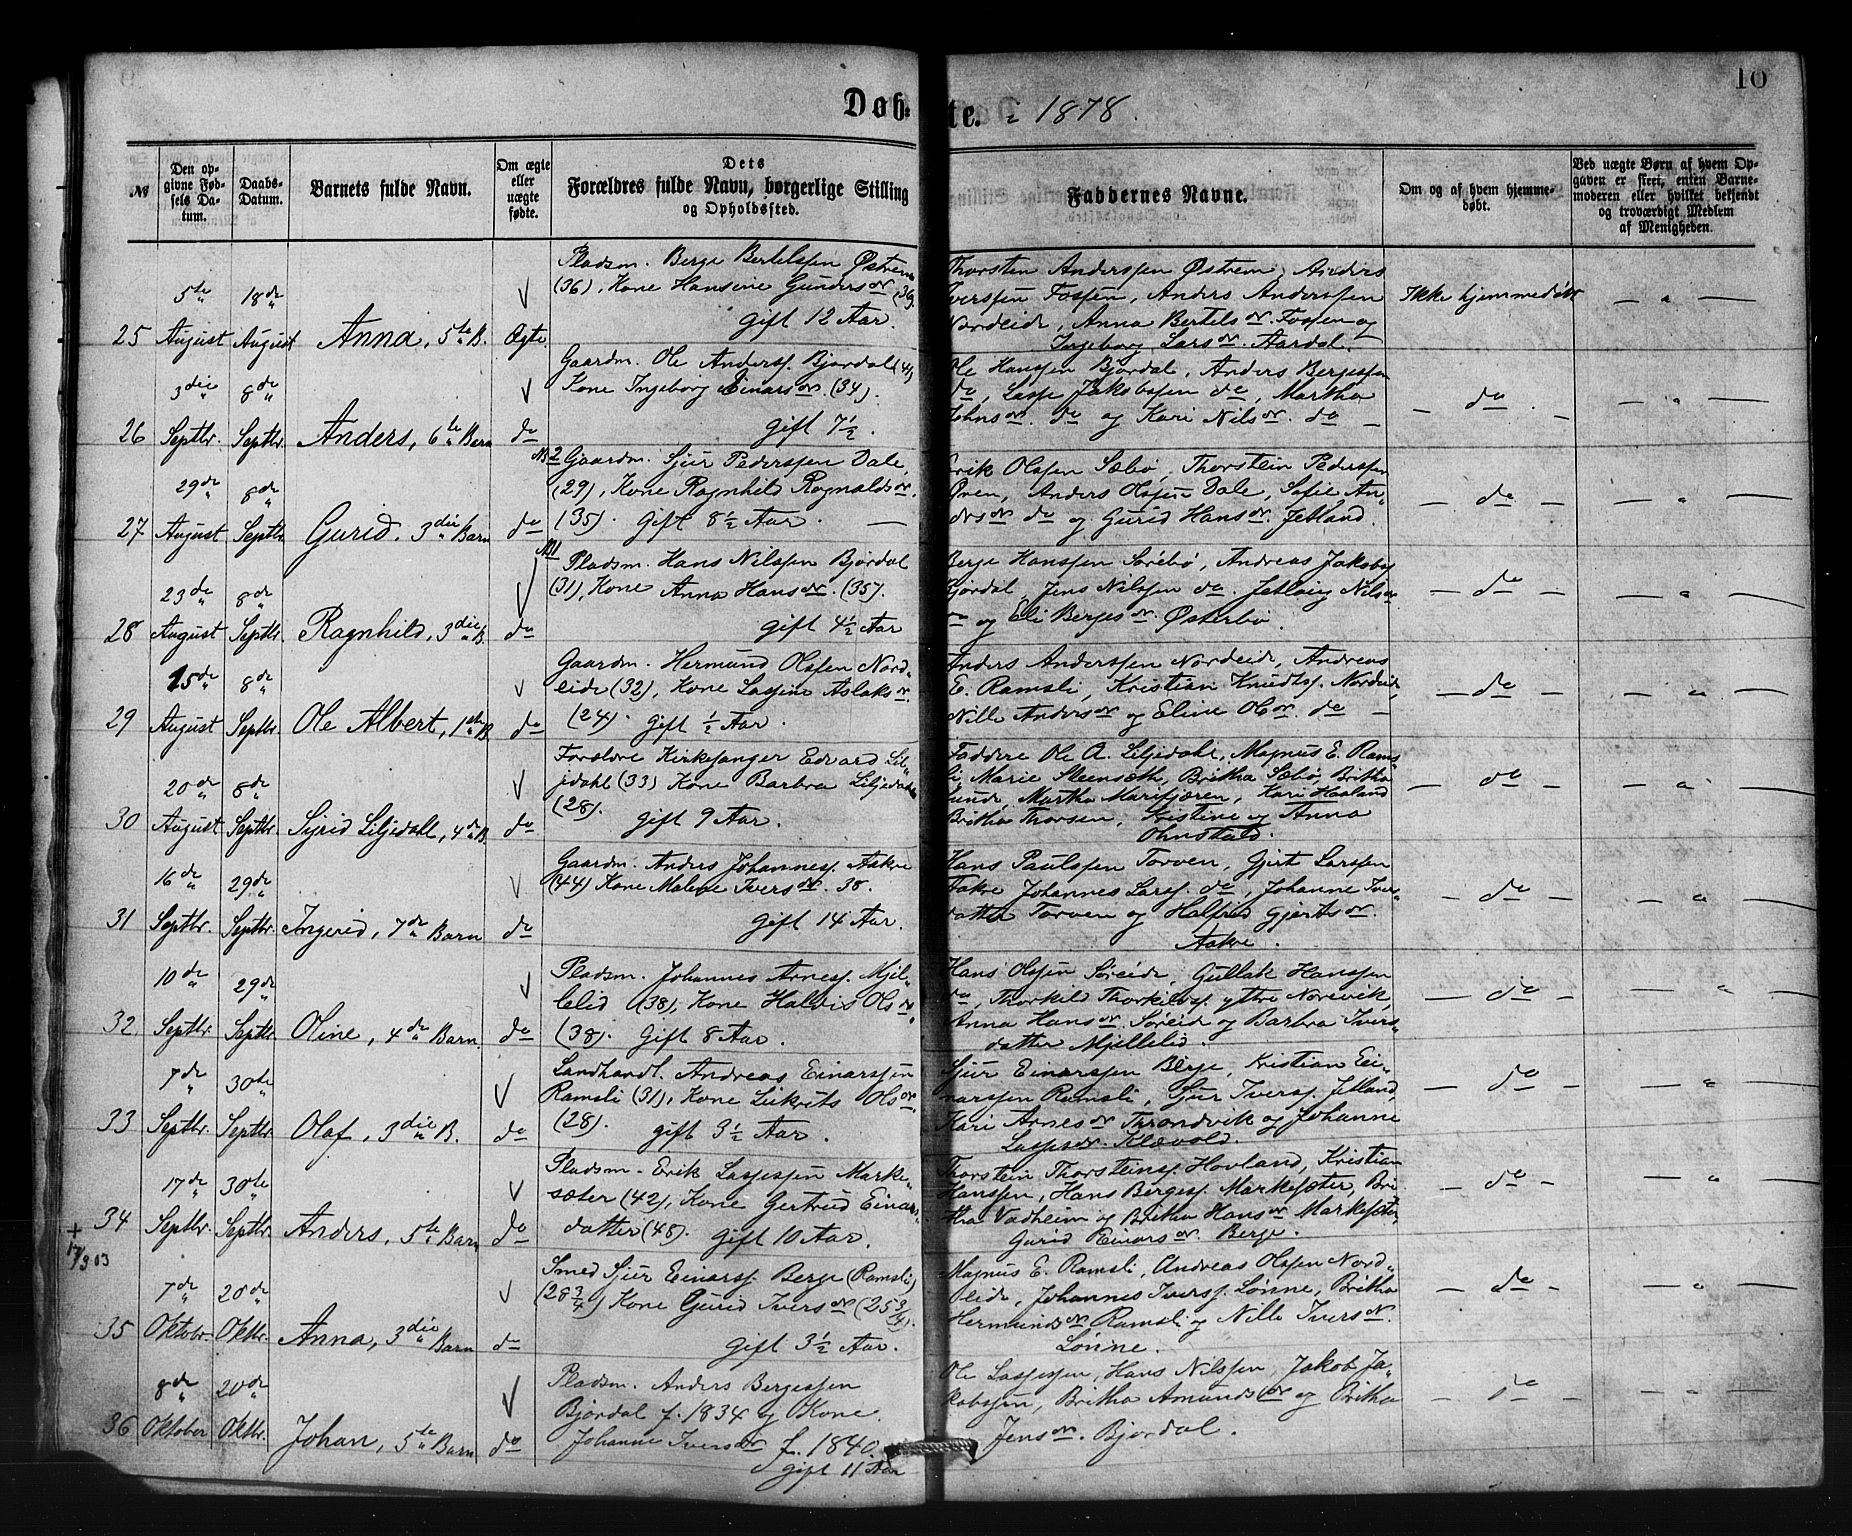 10
Døb-te. i 1878.
№
Den op-
givne Fød-
sels Da-
tum.
Daabs-
Datum.
Barnets fulde Navn.
Om ægte
eller
uægte
fødte.
Dets
Forældres fulde Navn, borgerlige Stilling
og Opholdssted.
Faddernes Navne.
Om og af hvem hjemme-
døbt.
Ved uægte Børn af hvem Op-
gaven er skeet, enten Barne-
moderen eller hvilket bekjendt
og troværdigt Medlem
af Menigheden.
25
5te
August
18de
August
Anna, 5te B.
Ægte
Pladsm. Berge Bertelssen Østrem
(36), Kone Hansine Gundersdr (36)
gift 12 Aar.
Thorsten Anderssen Østrem, Anders
Iverssen Fossen, Anders Anderssen
Nordeide, Anna Bertelsdr. Fossen og
Ingeborg Larsdr. Aardal.
Ikke hjemmedøbt
— " —
26
3die
Septbr.
8de
Septbr.
Anders, 6te Barn
do
Gaardm. Ole Anderss. Bjordal (41)
Kone Ingeborg Einarsdr. (34).
gift 7½.
Ole Hanssen Bjordal, Anders Bergessen
do, Lasse Jakobssen do, Martha
Johnsdr. do og Kari Nilsdr. do —
— do —
— " —
27
29de
August
8de
Septbr.
Gurid. 3die Barn
do
№ 2 Gaardm. Sjur Pederssen Dale,
(29), Kone Ragnhild Ragnaldsdr.
(35). Gift 8½ Aar. —
Erik Olssen Sæbø, Thorstein Pederssen
Øren, Anders Olssen Dale, Sofie An-
dersdr do og Gurid Hansdr. Jetland.
— do —
— " —
28
23de
August
8de
Septbr.
Ragnhild, 3die B.
do
№ 1
Pladsm. Hans Nilssen Bjordal
(31), Kone Anna Hansdr. (35).
gift 4½ Aar
Berge Hanssen Sørebø, Andreas Jakobs.
Bjordal, Jens Nilssen do. Jetlaug Nilsdr
do og Eli Bergesdr. Østerbø.
— do —
— " —
29
15de
August
8de
Septbr.
Ole Albert, 1ste B.
do
Gaardm. Hermund Olssen Nord-
eide (32), Kone Lassine Aslaksdr.
(24). gift ½ Aar.
Anders Anderssen Nordeide, Andreas
E. Ramsli, Kristian Knudts. Nordeide,
Nille Andersdr og Eline Olsdr. do —
— do —
— " —
30
20de
August
8de
Septbr.
Sigrid Liljedahl, 4de B.
do
Forældre Kirkesanger Edvard Lil-
jedahl (33) Kone Barbra Liljedahl
(28). gift 9 Aar.
Faddere Ole A. Liljedahl, Magnus E. Rams-
li, Marie Steensæth, Britha Sæbø, Britha
Sunde, Martha Marifjæren, Kari Hovland
Britha Thorsen, Kristine og Anna
Ohnstad.
— do —
— " —
31
16de
Septbr.
29de
Septbr.
Ingerid, 7de Barn
do
Gaardm. Anders Johanness. Aakre
(44) Kone Malene Iversdr. 38.
gift 14 Aar.
Hans Paulssen Torven, Gjert Larssen
Aakre Johannes Larss. do, Johanne Iver-
datter Torven og Halfrid Gjertsdr.
Aakre.
— do —
— " —
32
10de
Septbr.
29de
Septbr.
Oline, 4de Barn.
do
Pladsm. Johannes Arness. Mjel-
lelid (38), Kone Haldis Olsdr.
(38). Gift 8 Aar.
Hans Olssen Søreide, Gullak Hanssen
do, Thorkild Thorkilds. yttre Norevik,
Anna Hansdr. Søreid og Barbra Ivers-
datter Mjellelid.
— do —
— " —
33
7de
Septbr.
30te
Septbr.
Olaf, 3die B.
do
Landhandl. Andreas Einarssen
Ramsli (31), Kone Leikrits Olsdr.
(28). gift 3½ Aar.
Sjur Einarssen Berge, Kristian Ei-
narssen Ramsli, Sjur Iverss. Jetland,
Kari Arnesdr Throndvik og Johanne
Lassesdr. Klævold.
— do —
— " —
34
17de
Septbr.
30te
Septbr.
Anders, 5te Barn
do
Pladsm. Erik Lassessen Marke-
sæter (42), Kone Gertrud Einar-
datter (48). gift 10 Aar.
Thorstein Thorsteins. Hovland, Kristian
Hanssen, Hans Bergess. Markesæter, Bri-
tha Vadheim og Britha Hansdr Markesæter,
Gurid Einarsdr Berge.
— do —
— " —
+
17/3 03
35
7de
Oktobr.
20de
Oktbr.
Anna, 3die Barn
do
Smed Sjur Einarss. Berge (Ramsli)
(28¾) Kone Gurid Iversdr (25¾).
gift 3½ Aar.
Magnus E. Ramsli, Andreas Olssen Nord-
eide, Johannes Iverss. Lønne, Britha
Hermundsdr Ramsli og Nille Iversdr.
Lønne.
— do —
— " —
36
8de
Oktober
20de
Oktbr.
Johan, 5te Barn
do
Pladsm. Anders Bergessen
Bjordal f. 1834 og Kone.
Johanne Iversdr f. 1840.
gift 11 Aar
Ole Lassessen, Hans Nilssen, Jakob Ja-
kobssen, Britha Amundsdr og Britha
Jensdr. Bjordal.
— do —
— " —